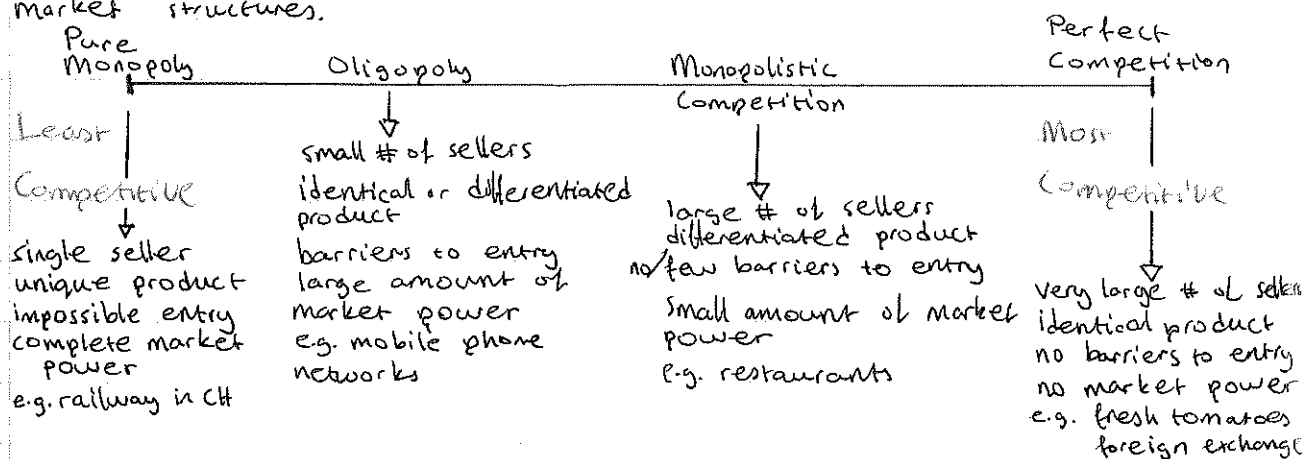 market structures.
Pure
Monopoly
Least
Competitive
single seller
unique product
impossible entry
complete market
power
e.g. railway in CH
Oligopoly
small # of sellers
identical or differentiated
product
barriers to entry
large amount of
market power
e.g. mobile phone
networks
Monopolistic
Competition
large # of sellers
differentiated product
no/few barriers to entry
small amount of market
power
e.g. restaurants
Perfect
Competition
Most
Competitive
very large # of sellers
identical product
no barriers to entry
no market power
e.g. fresh tomatoes
foreign exchange